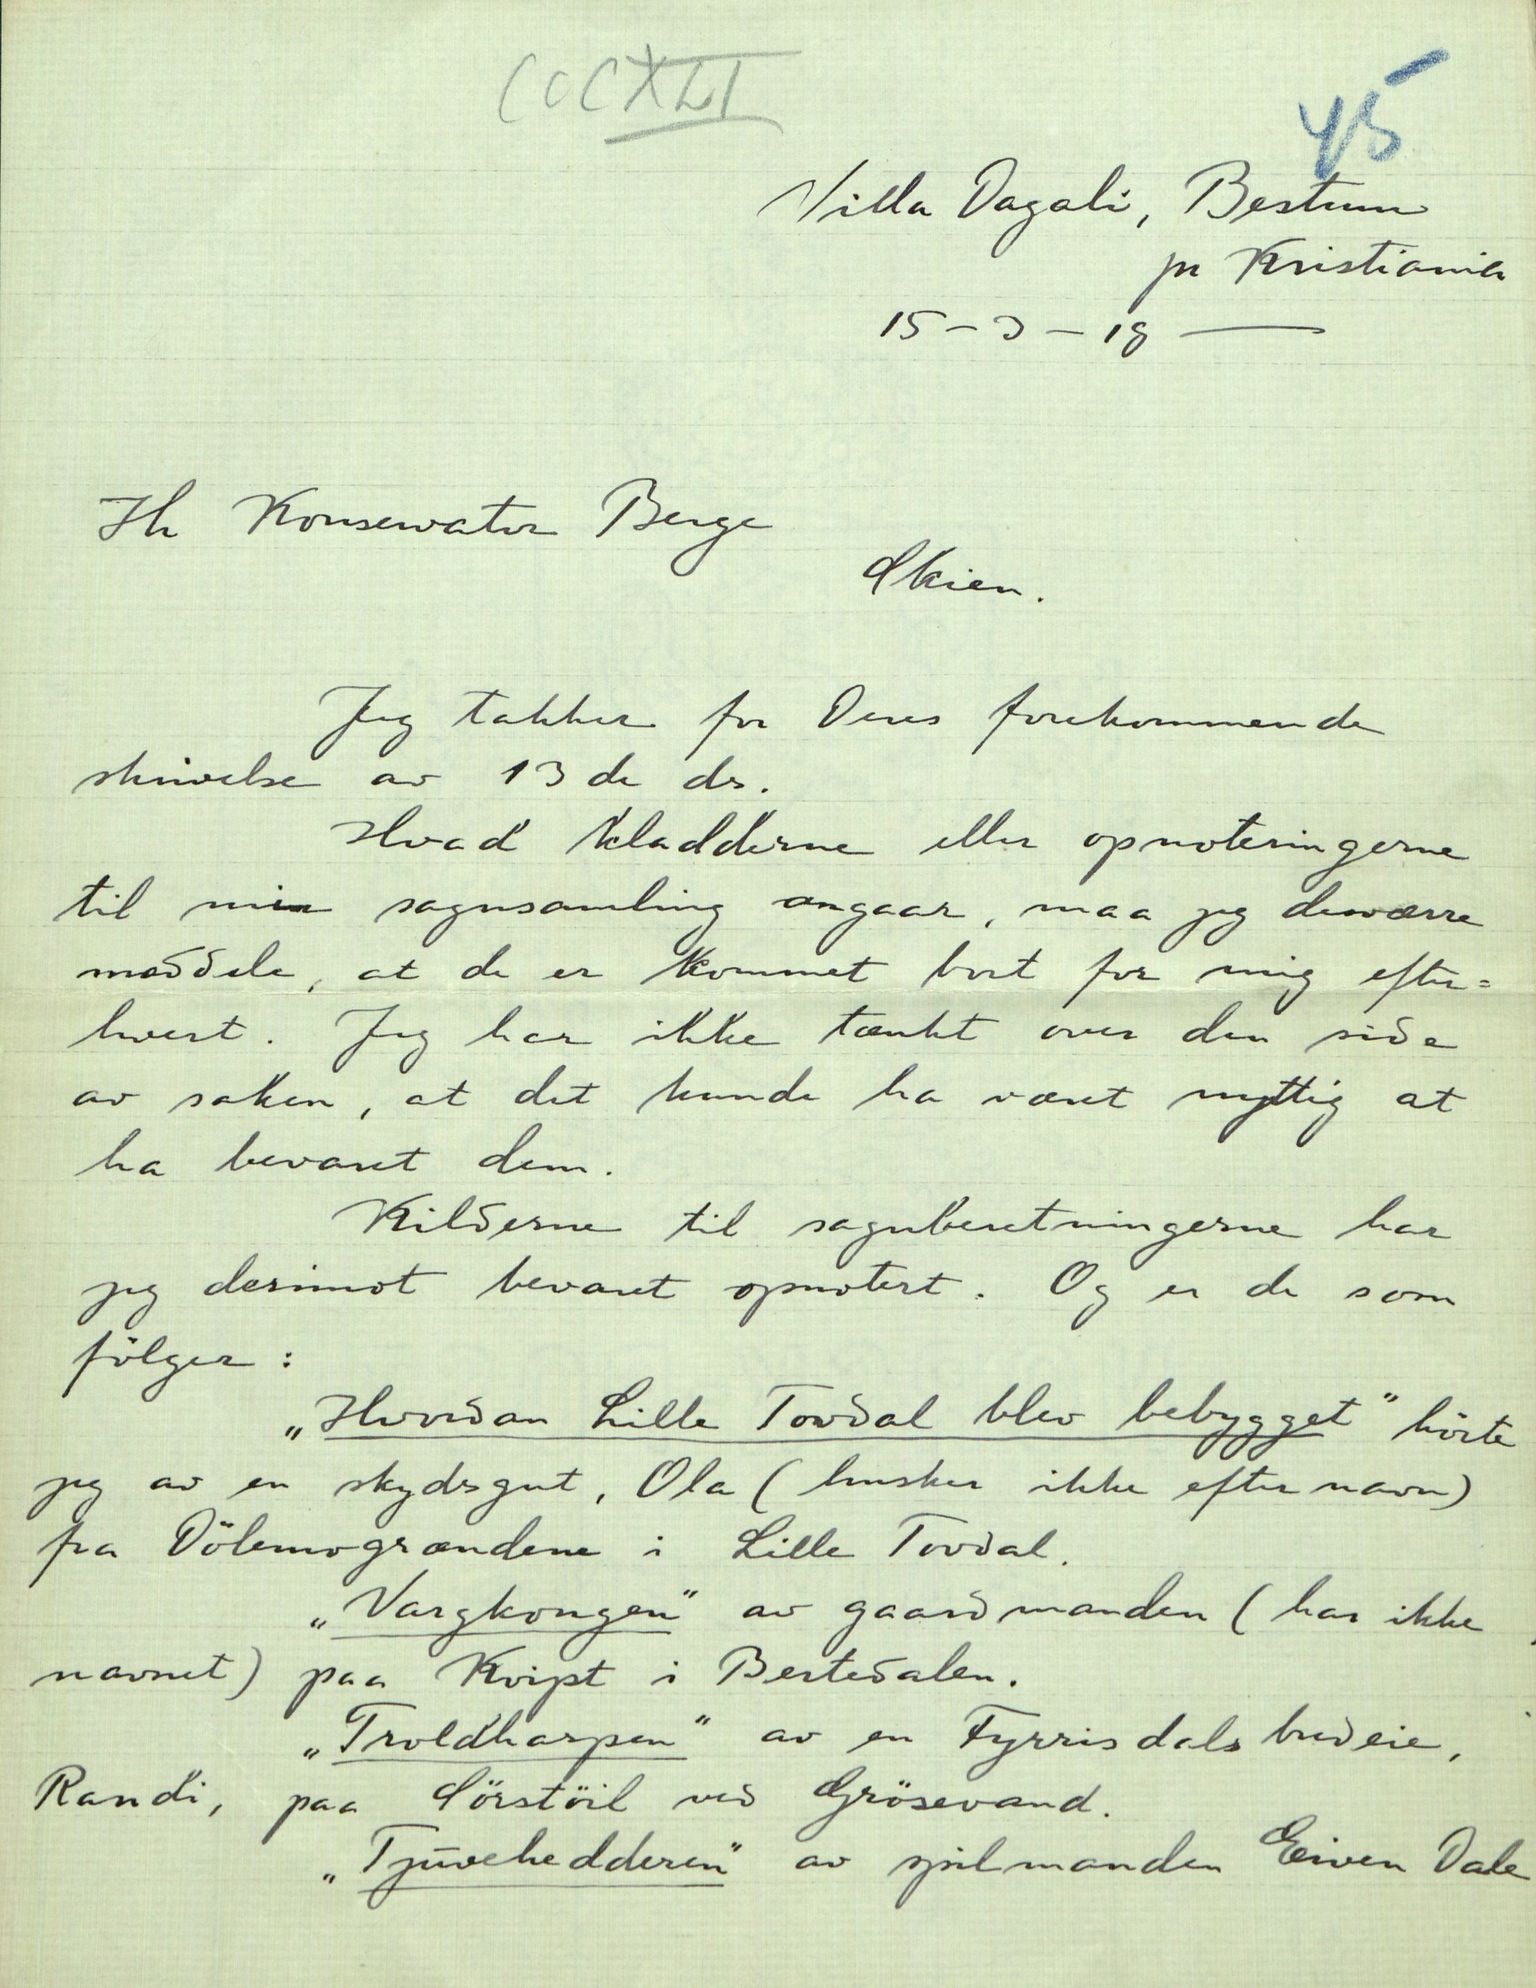 CCCXLI
45
Villa Dagali, Bestum
pr Kristiania
15-3-18
Hr Konservator Berge
Skien.
Jeg takker for Deres forekommende
skrivelse av 13de ds.
Hvad kladderne eller opnoteringerne
til min sagnsamling angaar, maa jeg desværre
meddele, at de er kommet bort for mig efter=
hvert. Jeg har ikke tænkt over den side
av saken, at det kunde ha været nyttig at
ha bevaret dem.
Kilderne til sagnberetningerne har
jeg derimot bevaret opnotert. Og er de som
følger:
„Hvordan Lille Tovdal blev bebygget" hörte
jeg av en skydsgut, Ola (husker ikke efternavn)
fra Dölemogrændene i Lille Tovdal.
„Vargkongen" av gaardmanden (har ikke
navnet) paa Kvipt i Bestedalen.
„Troldharpen" av en Fyrrisdals budeie,
Randi, paa Sörstöil ved Grösevand.
„Tjuvehedderen" av spilmanden Eiven Dale